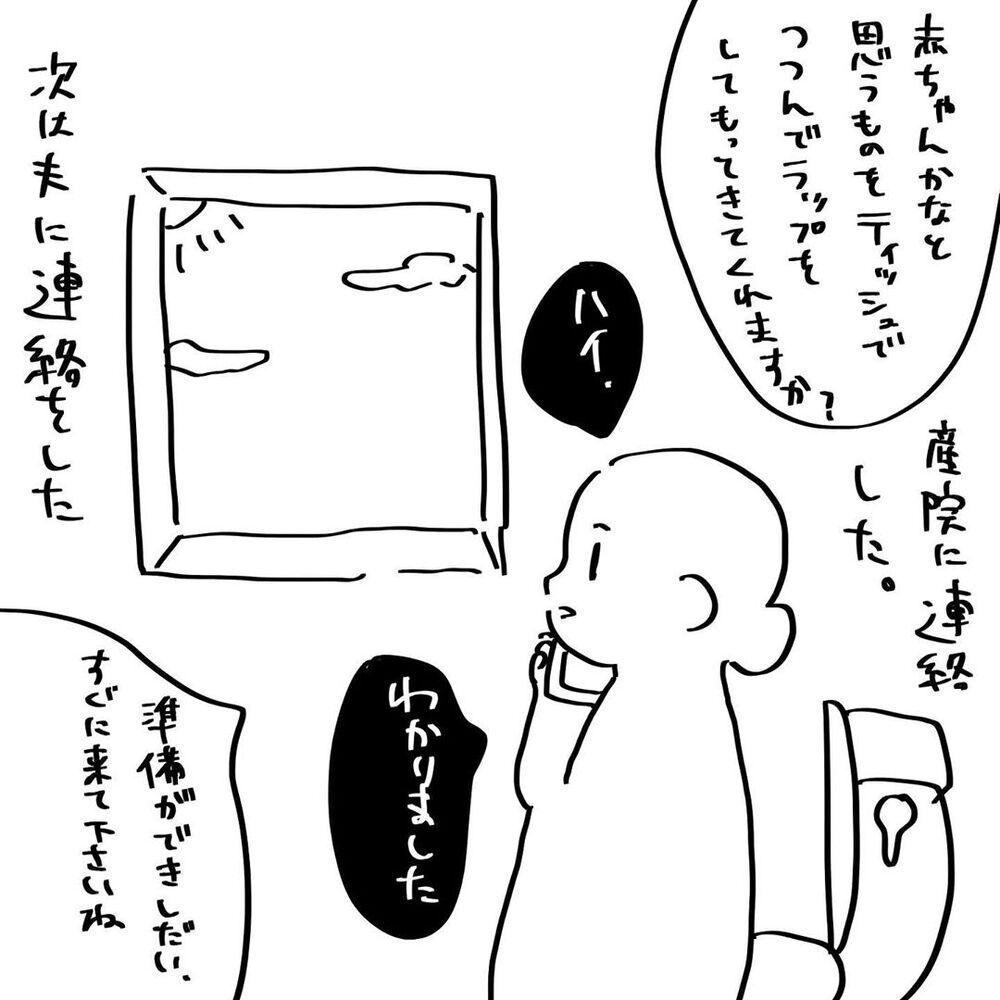 赤ちゃんかなと
思うものをティッシュで
つつんでラップを
してもってきてくれますか?
産院に連絡
した。
ハイ.
わかりました
準備ができしだい.
すぐに来て下さいね。
次は夫に連絡をした